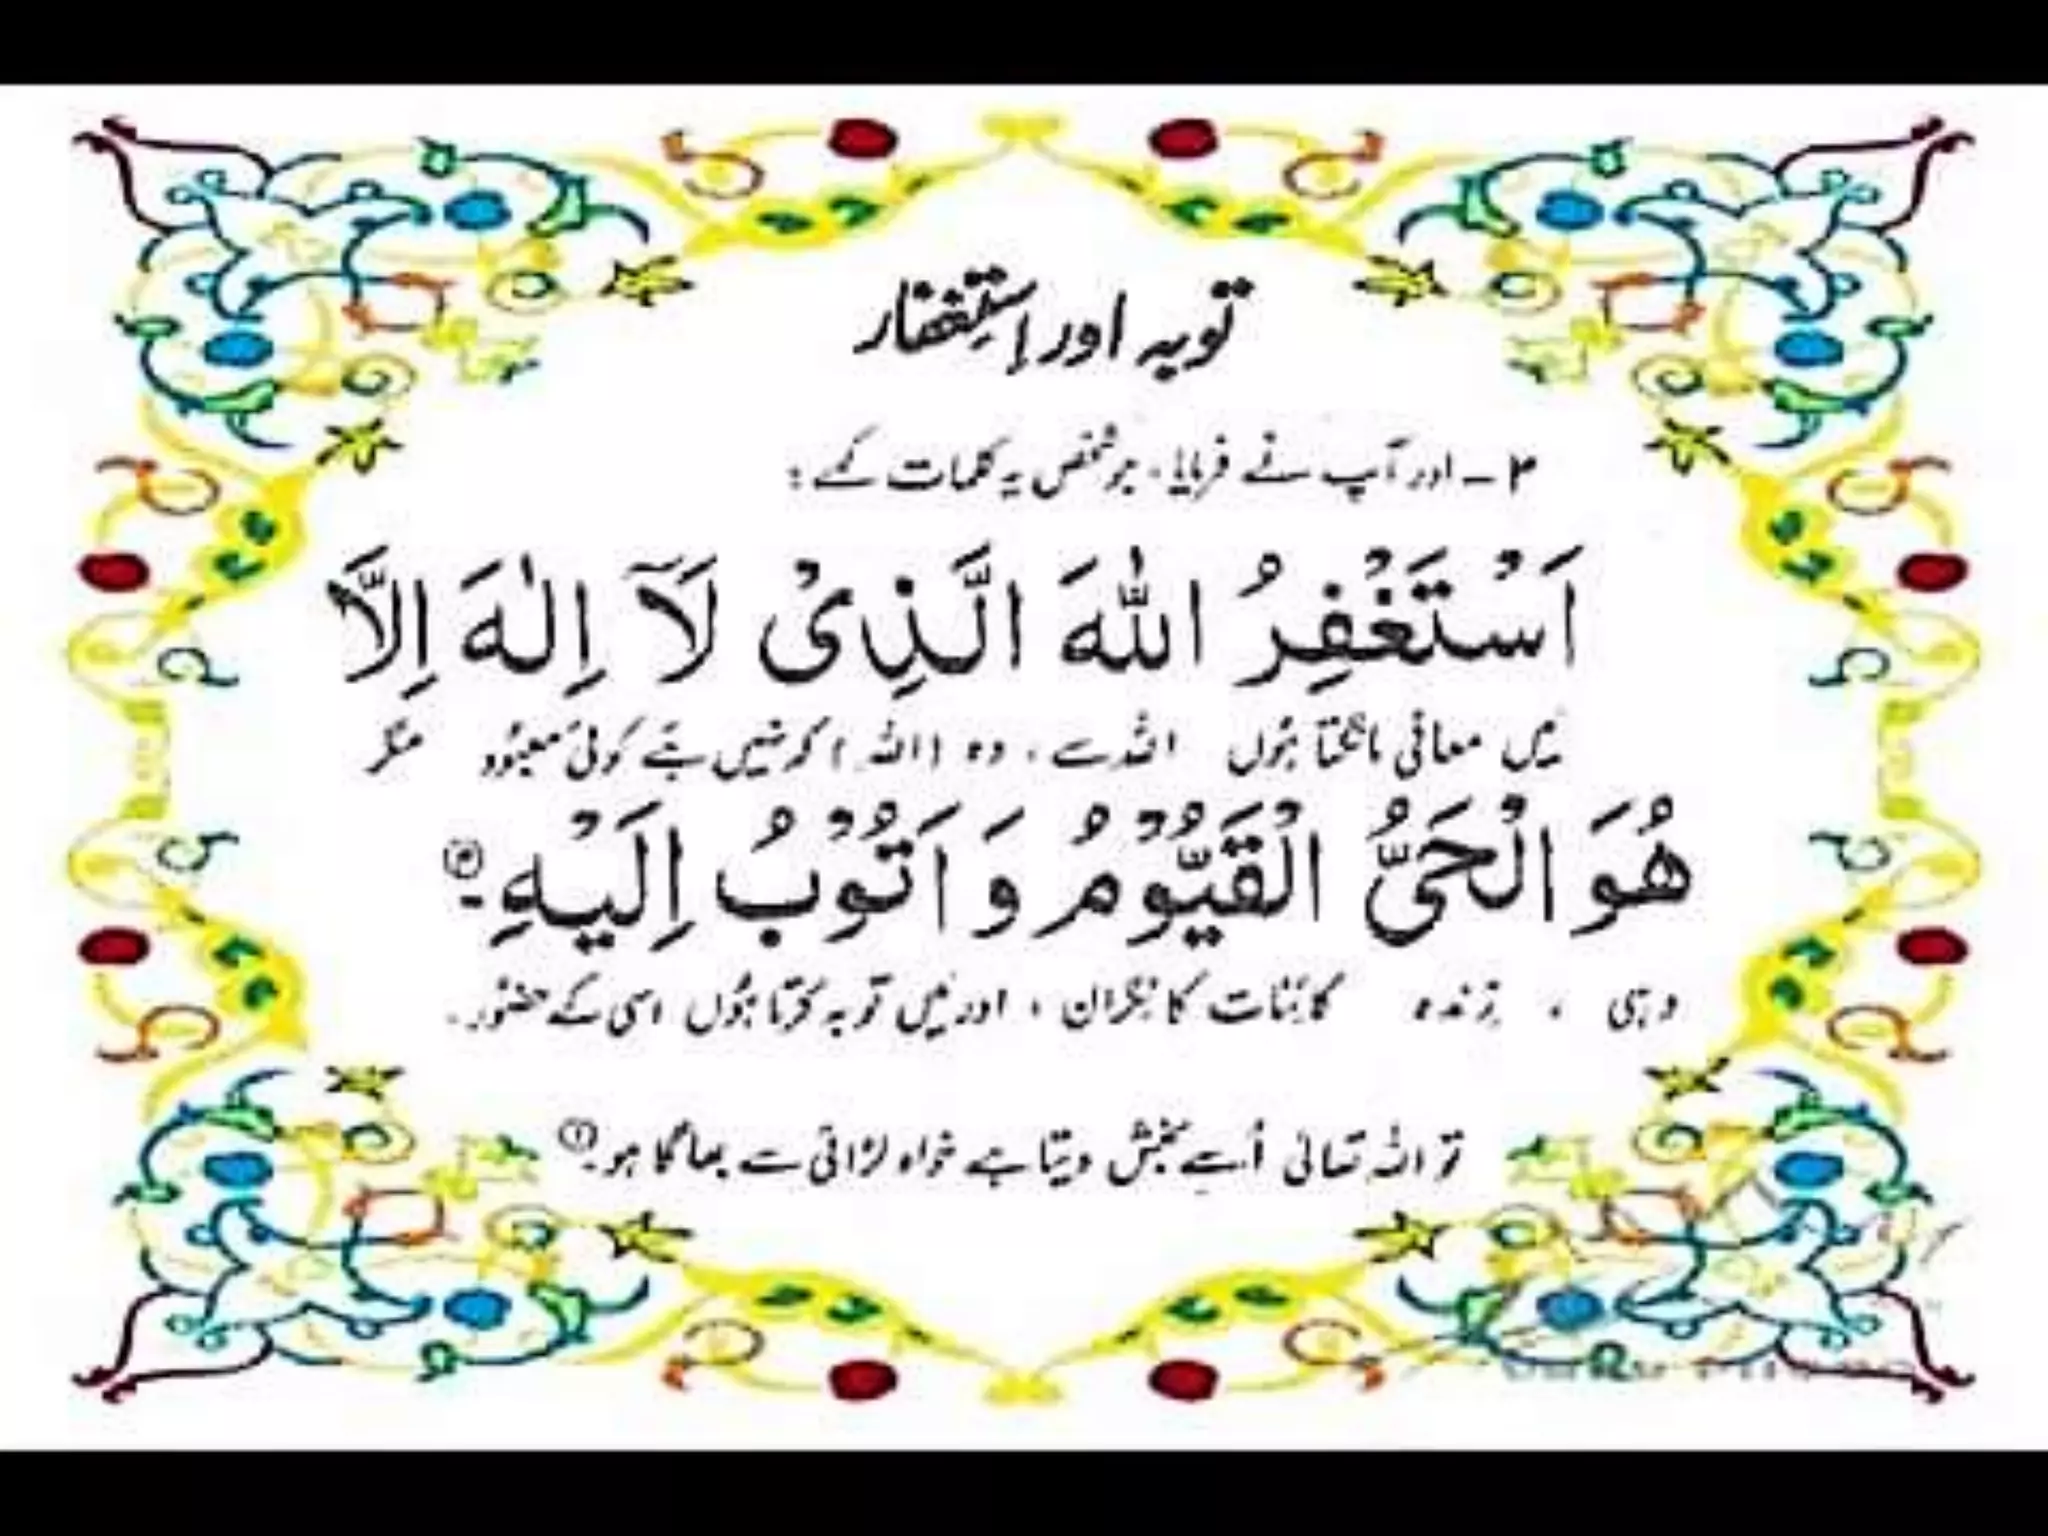 توبہ اور اِستِغفار
۳ - اور آپ نے فرمایا، جو شخص یہ کلمات کہے :
اَسْتَغْفِرُ اللّٰهَ الَّذِىْ لَآ اِلٰهَ اِلَّا
میں معافی مانگتا ہُوں اللہ سے ، وہ (اللہ) کہ نہیں ہَے کوئی معبُود مگر
هُوَ الْحَىُّ الْقَيُّوْمُ وَ اَتُوْبُ اِلَيْهِ -
وہی ، زندہ کائنات کا نگران ، اور میں توبہ کرتا ہُوں اسی کے حضُور -
تو اللہ تعالیٰ اُسے بخش دیتا ہے خواہ لڑائی سے بھاگا ہو - ①